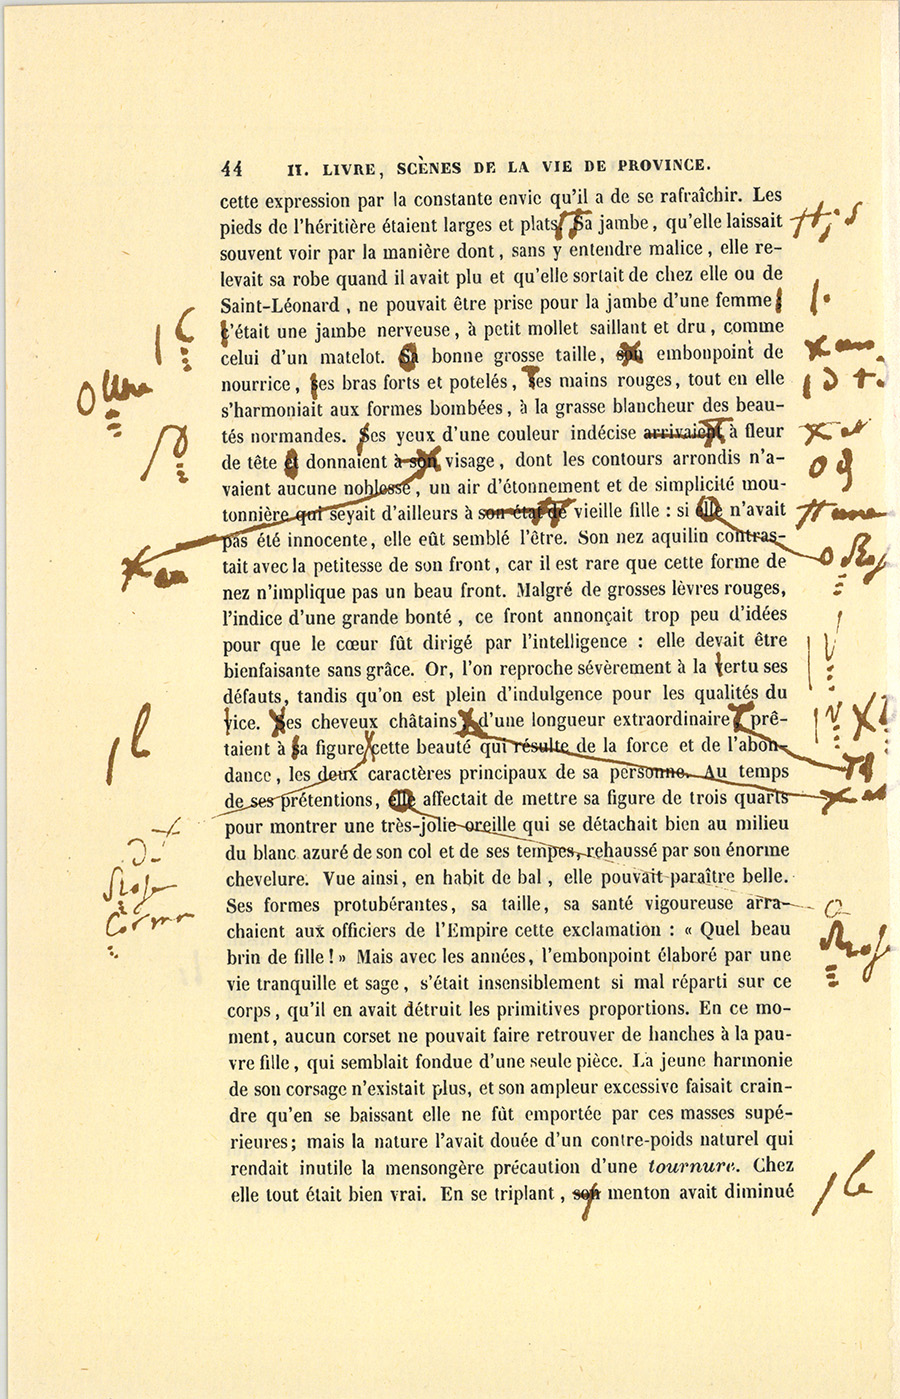 44 II. LIVRE, SCÈNES DE LA VIE DE PROVINCE.
cette expression par la constante envie qu'il a de se rafraîchir. Les
pieds de l'héritière étaient larges et plats. Sa jambe, qu'elle laissait
souvent voir par la manière dont, sans y entendre malice, elle re-
levait sa robe quand il avait plu et qu'elle sortait de chez elle ou de
Saint-Léonard, ne pouvait être prise pour la jambe d'une femme
c'était une jambe nerveuse, à petit mollet saillant et dru, comme
celui d'un matelot. Sa bonne grosse taille, son embonpoint de
nourrice, ses bras forts et potelés, ses mains rouges, tout en elle
s'harmoniait aux formes bombées, à la grasse blancheur des beau-
tés normandes. Ses yeux d'une couleur indécise arrivaient à fleur
de tête et donnaient à son visage, dont les contours arrondis n'a-
vaient aucune noblesse, un air d'étonnement et de simplicité mou-
tonnière qui seyait d'ailleurs à son état de vieille fille : si elle n'avait
pas été innocente, elle eût semblé l'être. Son nez aquilin contras-
tait avec la petitesse de son front, car il est rare que cette forme de
nez n'implique pas un beau front. Malgré de grosses lèvres rouges,
l'indice d'une grande bonté, ce front annonçait trop peu d'idées
pour que le cœur fût dirigé par l'intelligence : elle devait être
bienfaisante sans grâce. Or, l'on reproche sévèrement à la vertu ses
défauts, tandis qu'on est plein d'indulgence pour les qualités du
vice. Ses cheveux châtains, d'une longueur extraordinaire, prê-
taient à sa figure cette beauté qui résulte de la force et de l'abon-
dance, les deux caractères principaux de sa personne. Au temps
de ses prétentions, elle affectait de mettre sa figure de trois quarts
pour montrer une très-jolie oreille qui se détachait bien au milieu
du blanc azuré de son col et de ses tempes, rehaussé par son énorme
chevelure. Vue ainsi, en habit de bal, elle pouvait paraître belle.
Ses formes protubérantes, sa taille, sa santé vigoureuse arra-
chaient aux officiers de l'Empire cette exclamation : « Quel beau
brin de fille ! » Mais avec les années, l'embonpoint élaboré par une
vie tranquille et sage, s'était insensiblement si mal réparti sur ce
corps, qu'il en avait détruit les primitives proportions. En ce mo-
ment, aucun corset ne pouvait faire retrouver de hanches à la pau-
vre fille, qui semblait fondue d'une seule pièce. La jeune harmonie
de son corsage n'existait plus, et son ampleur excessive faisait crain-
dre qu'en se baissant elle ne fût emportée par ces masses supé-
rieures; mais la nature l'avait douée d'un contre-poids naturel qui
rendait inutile la mensongère précaution d'une tournure. Chez
elle tout était bien vrai. En se triplant, son menton avait diminué